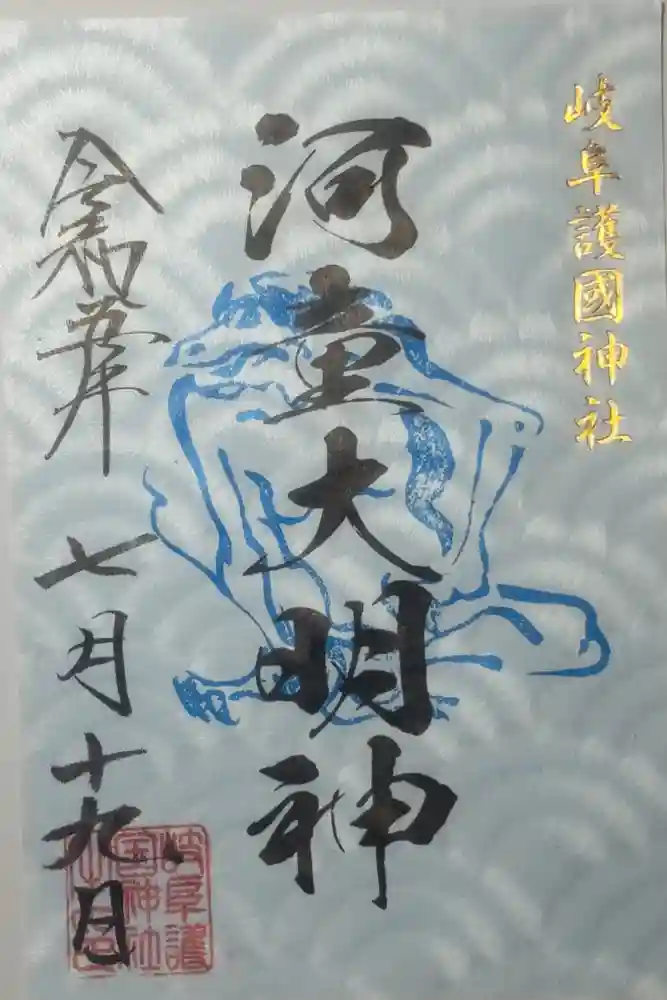 岐阜護國神社
河童大明神
令和年七月十九日
岐阜護
国神社